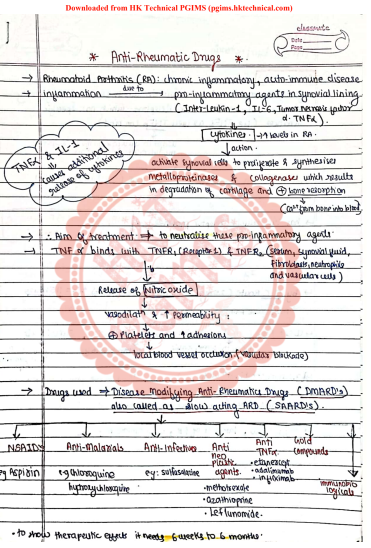 Downloaded from HK Technical PGIMS (pgims.hktechnical.com)
classmate
Date
Page
* Anti-Rheumatic Drugs *.
→ Rheumatoid Arthritis (RA): chronic inflammatory, auto-immune disease
→ inflammation due to → pro-inflammatory agents in synovial lining
(Inter-Leukin-1, IL-6, Tumor necrosis factor
α. TNFα).
cytokines → ↑ levels in RA.
action.
TNFα & IL-1
causes additional
release of cytokines
activate synovial cells to proliferate & synthesises
metalloproteinases & collagenases which results
in degradation of cartilage and ⊕ bone resorption
(Ca²⁺ from bone into blood)
→ ∴ Aim of treatment → to neutralise these pro-inflammatory agents
→ TNF α binds with TNFR₁ (Receptor 1) & TNFR₂ (serum, synovial fluid,
fibroblasts, neutrophils
and vascular cells)
Release of Nitric oxide
vasodilatn & ↑ Permeability :
⊕ Platelets and ↑ adhesions
local blood vessel occlusion (vascular blockade)
→ Drugs used → Disease Modifying Anti-Rheumatics Drugs (DMARD's)
also called as slow acting ARD (SAARD's).
NSAIDs Anti-Malarials Anti-Infectives Anti neo plastic agents. Anti TNFα Gold compounds
eg Aspirin eg chloroquine eg: sulfasalazine • etanercept
hydroxychloroquine • adalimumab
• infliximab immunobio
logicals
• methotrexate
• azathioprine
• Leflunomide.
• to show therapeutic effects it needs 6 weeks to 6 months.